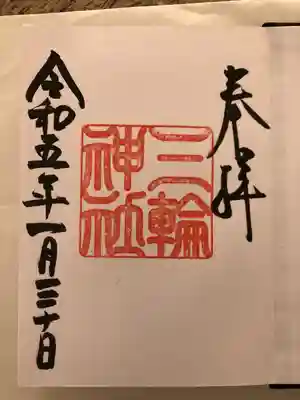 奉拝
三輪
神社
令和五年一月三十日